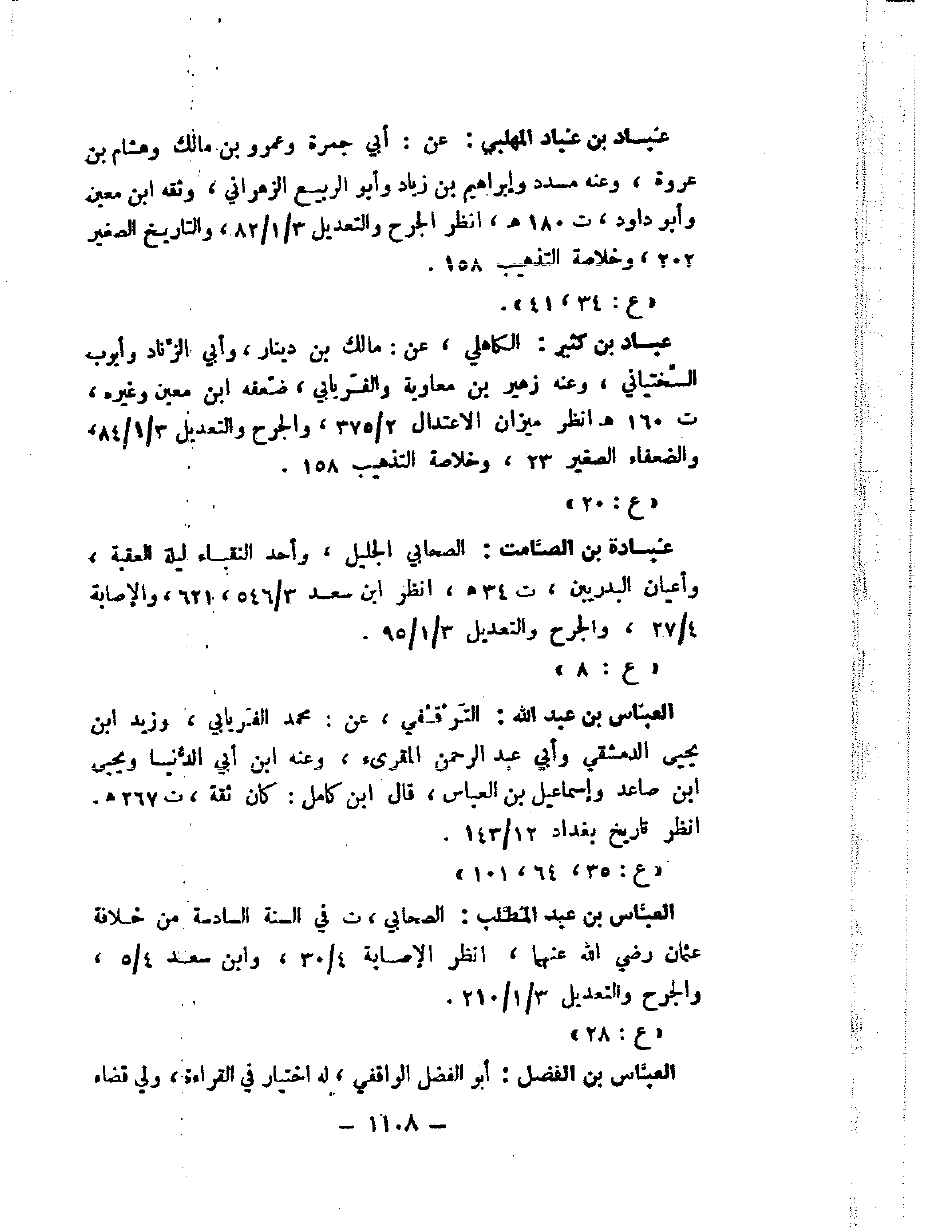 عَبّاد بن عَبّاد المهلبي : عن : أبي جمرة وعمرو بن مالك وهشام بن
عروة ، وعنه مسدد وإبراهيم بن زياد وأبو الربيع الزهراني ، وثقه ابن معين
وأبو داود ، ت ١٨٠ هـ ، انظر الجرح والتعديل ٨٢/١/٣ ، والتاريخ الصغير
٢٠٢ ، وخلاصة التذهيب ١٥٨ .
« ع : ٣٤ ، ٤١ » .
عبّاد بن كثير : الكاهلي ، عن : مالك بن دينار ، وأبي الزّناد وأيوب
السّختياني ، وعنه زهير بن معاوية والفريابي ، ضعّفه ابن معين وغيره ،
ت ١٦٠ هـ انظر ميزان الاعتدال ٣٧٥/٢ ، والجرح والتعديل ٨٤/١/٣ ،
والضعفاء الصغير ٢٣ ، وخلاصة التذهيب ١٥٨ .
« ع : ٢٠ »
عُبادة بن الصّامت : الصحابي الجليل ، وأحد النقباء ليلة العقبة ،
وأعيان البدريين ، ت ٣٤ هـ ، انظر ابن سعد ٥٤٦/٣ ، ٦٢١ ، والإصابة
٢٧/٤ ، والجرح والتعديل ٩٥/١/٣ .
« ع : ٨ »
العبّاس بن عبد الله : التّرْقُفي ، عن : محمد الفريابي ، وزيد ابن
يحيى الدمشقي وأبي عبد الرحمن المقرىء ، وعنه ابن أبي الدُّنيا ويحيى
ابن صاعد وإسماعيل بن العباس ، قال ابن كامل : كان ثقة ، ت ٢٦٧ هـ .
انظر تاريخ بغداد ١٤٣/١٢ .
« ع : ٣٥ ، ٦٤ ، ١٠١ »
العبّاس بن عبد المطّلب : الصحابي ، ت في السنة السادسة من خلافة
عثمان رضي الله عنهما ، انظر الإصابة ٣٠/٤ ، وابن سعد ٥/٤ ،
والجرح والتعديل ٢١٠/١/٣ .
« ع : ٢٨ »
العبّاس بن الفضل : أبو الفضل الواقفي ، له اختيار في القراءة ، ولي قضاء
— ١١٠٨ —